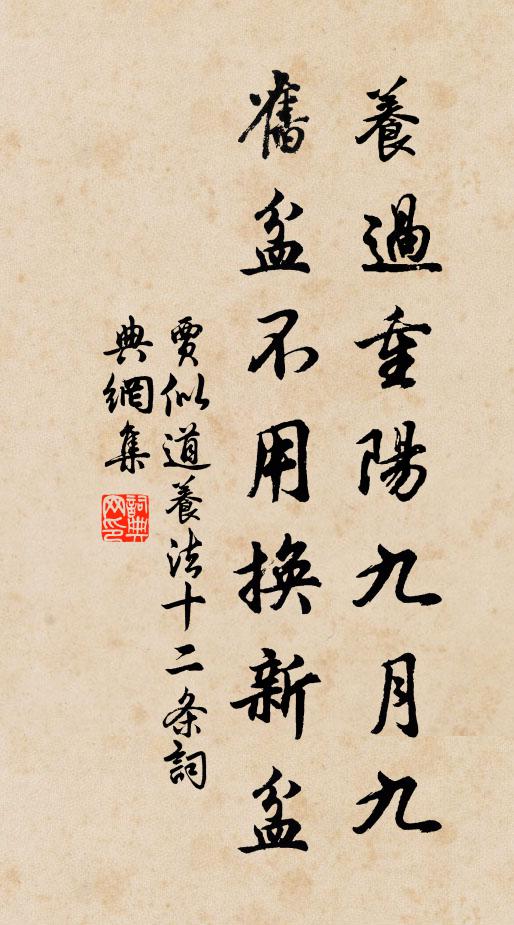 養過重陽九月九
舊盆不用換新盆
賈似道養法十二条詞
典網集
詞典
网印